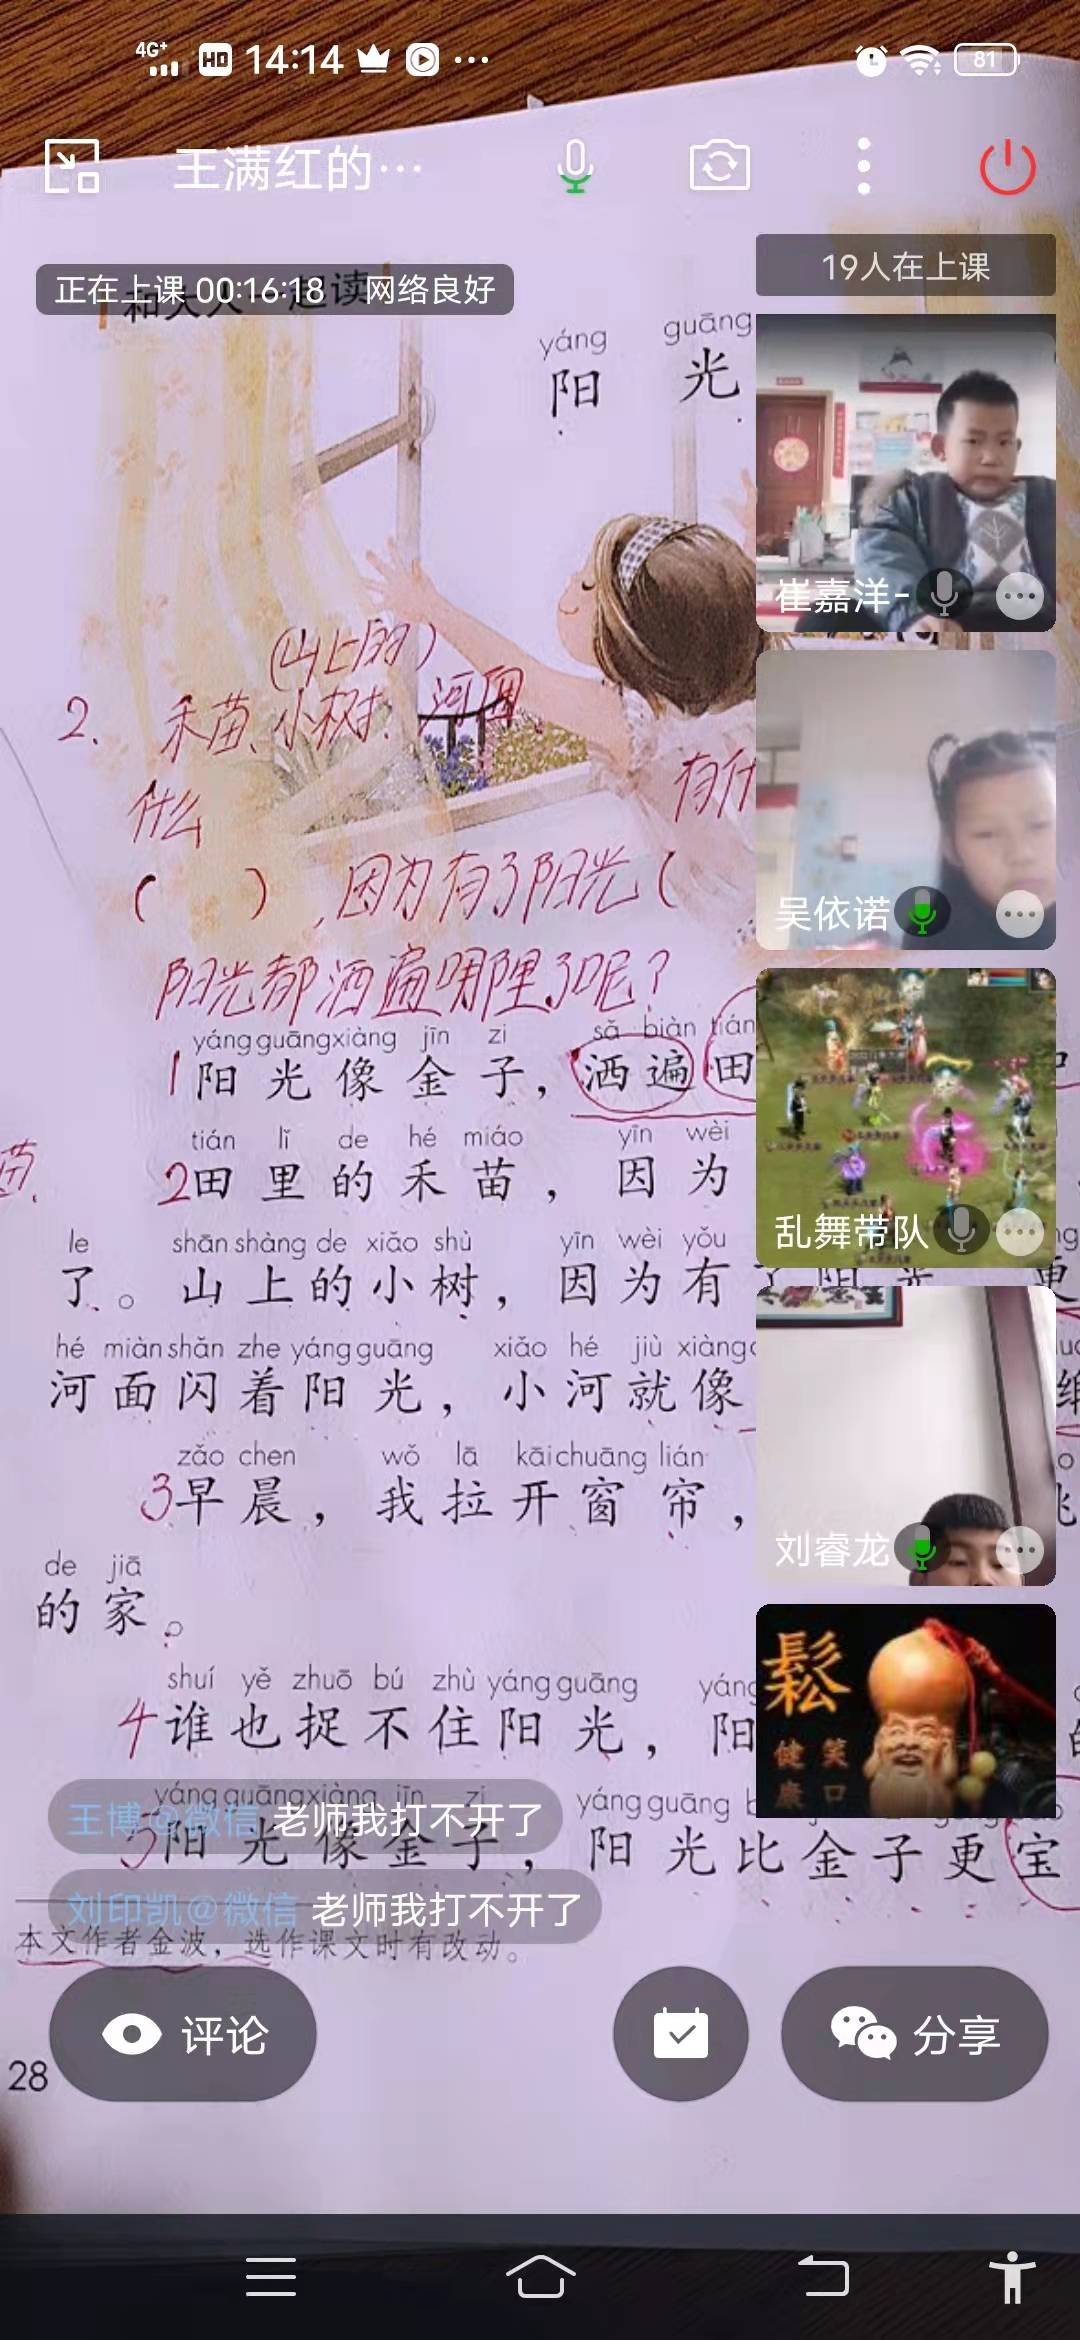 4G+ HD 14:14 ··· 81
王满红的···
正在上课 00:16:18 网络良好
19人在上课
和大人一起读
yáng guāng
阳 光
崔嘉洋-
(山上的)
2. 禾苗、小树、河面
什么
有什
吴依诺
( ),因为有了阳光(
阳光都洒遍哪里了呢?
yáng guāng xiàng jīn zi sǎ biàn tián
1阳光像金子,洒遍田
tián lǐ de hé miáo yīn wèi
2田里的禾苗,因为
苗、
乱舞带队
le shān shàng de xiǎo shù yīn wèi yǒu
了。山上的小树,因为有了阳光 更
hé miàn shǎn zhe yáng guāng xiǎo hé jiù xiàng
河面闪着阳光,小河就像
zǎo chen wǒ lā kāi chuāng lián
3早晨,我拉开窗帘,
刘睿龙
de jiā
的家。
shuí yě zhuō bú zhù yáng guāng yáng
4谁也捉不住阳光,阳
鬆
健 笑
康 口
yáng guāng xiàng jīn zi yáng guāng
5阳光像金子,阳光比金子更宝
王博@微信 老师我打不开了
刘印凯@微信 老师我打不开了
本文作者金波,选作课文时有改动。
评论
分享
28